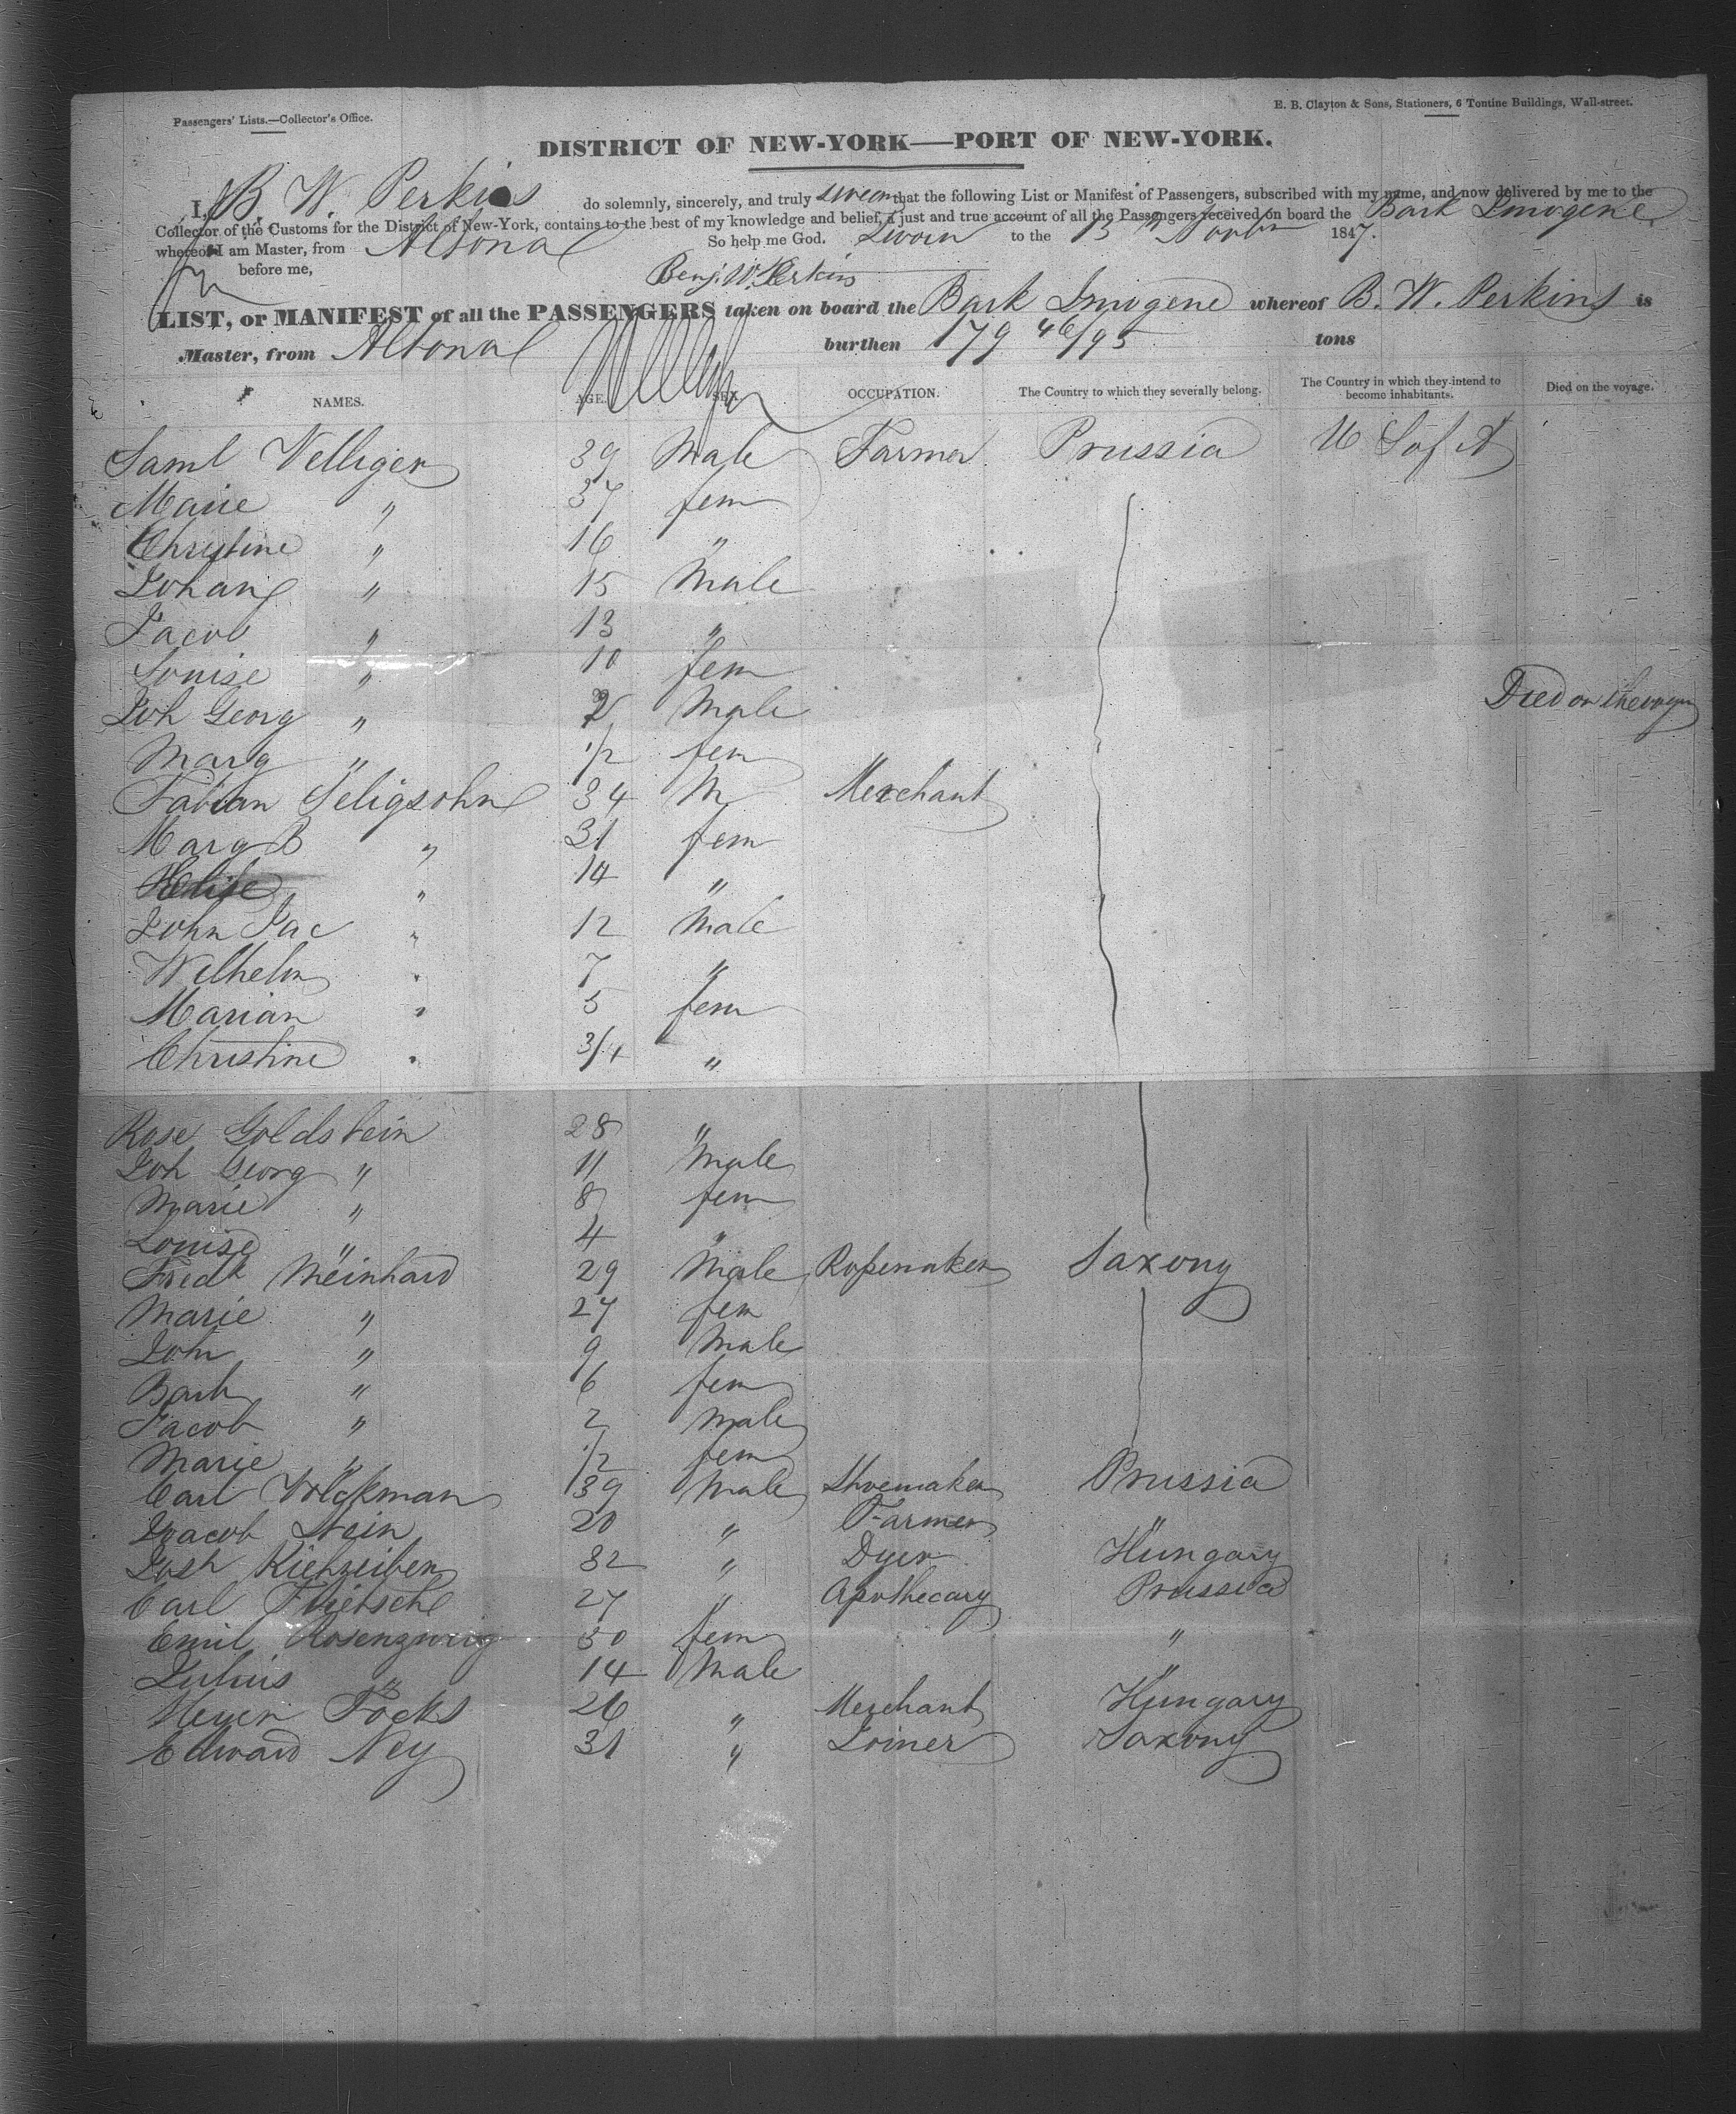 Passengers' Lists.—Collector's Office.
E. B. Clayton & Sons, Stationers, 6 Tontine Buildings, Wall-street.
DISTRICT OF NEW-YORK—PORT OF NEW-YORK.
I, B. W. Perkins do solemnly, sincerely, and truly swear that the following List or Manifest of Passengers, subscribed with my name, and now delivered by me to the
Collector of the Customs for the District of New-York, contains to the best of my knowledge and belief, a just and true account of all the Passengers received on board the Bark Imogene
whereof I am Master, from Altona So help me God. Sworn to the 13 Novbr 1847.
before me,
Benj. W. Perkins
LIST, or MANIFEST of all the PASSENGERS taken on board the Bark Imogene whereof B. W. Perkins is
Master, from Altona burthen 179 46/95 tons
NAMES. AGE. SEX. OCCUPATION. The Country to which they severally belong. The Country in which they intend to become inhabitants. Died on the voyage.
Saml Velliger 39 Male Farmer Prussia U S of A
Marie " 37 fem
Christine " 16 "
Johang " 15 Male
Jacob " 13 "
Louise " 10 fem
Joh Georg " Male Died on the voyage
Marg " 1/2 fem
Fabian Seligsohn 34 M Merchant
Marg B " 31 fem
Elise " 14 "
John Jac " 12 Male
Wilhelm " 7 "
Marian " 5 fem
Christine " 3/4 "
Rose Goldstein 28 "
Joh Georg " 11 Male
Marie " 8 fem
Louise " 4 "
Fredk Meinhard 29 Male Ropemaker Saxony
Marie " 27 fem
John " 9 Male
Barb " 6 fem
Jacob " 2 Male
Marie " 1/2 fem
Carl Volckman 39 Male Shoemaker Prussia
Jacob Stein 20 " Farmer "
Josh 32 " Dyer Hungary
Carl 27 " Apothecary Prussia
Emil Rosenzweig 30 fem "
Julius " 14 Male "
Meyer Focks 26 " Merchant Hungary
Edward Ney 31 " Joiner Saxony